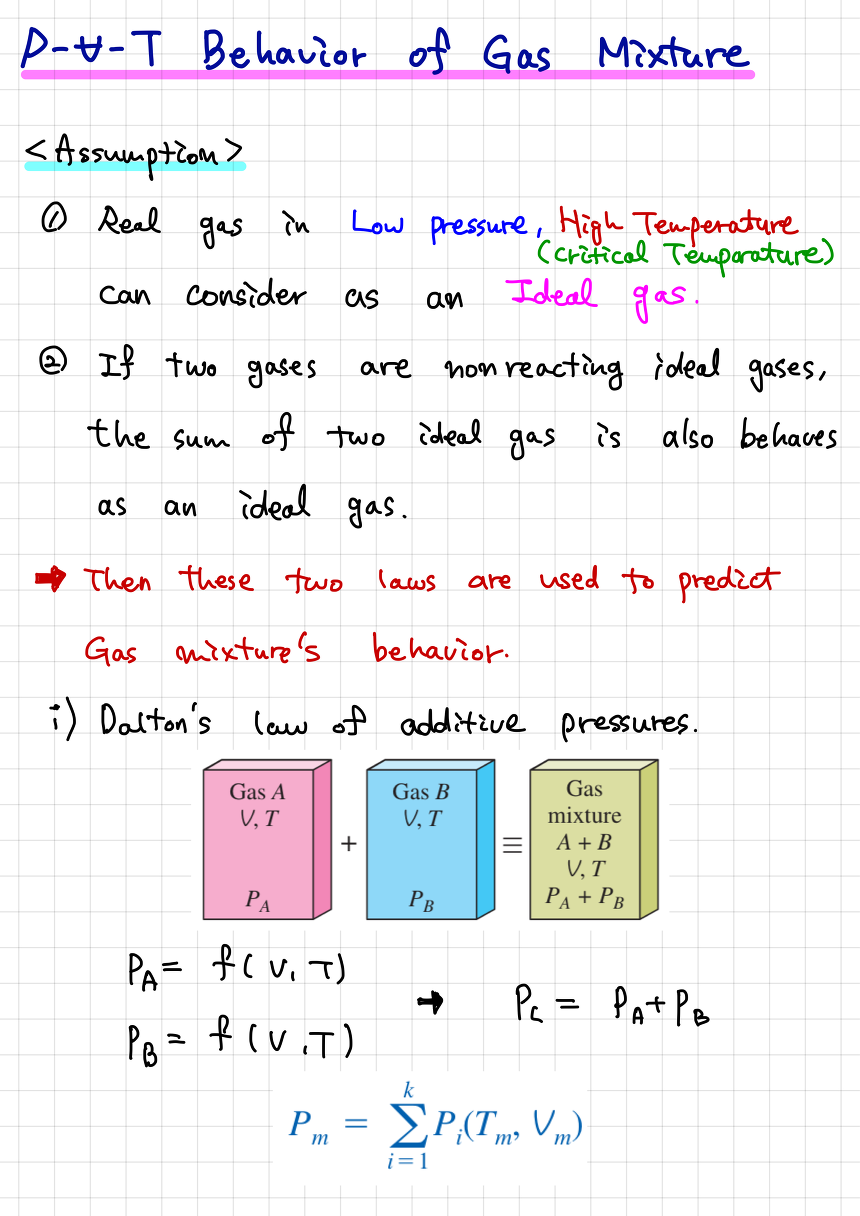 P-V-T Behavior of Gas Mixture
<Assumption>
① Real gas in Low pressure, High Temperature
(Critical Temparature)
can consider as an Ideal gas.
② If two gases are nonreacting ideal gases,
the sum of two ideal gas is also behaves
as an ideal gas.
➡ Then these two laws are used to predict
Gas mixture's behavior.
i) Dalton's law of additive pressures.
Gas A
V, T
P_A
+
Gas B
V, T
P_B
≡
Gas
mixture
A + B
V, T
P_A + P_B
P_A = f(V, T)
P_B = f(V, T)
➡ P_C = P_A + P_B
P_m = \sum_{i=1}^{k} P_i(T_m, V_m)